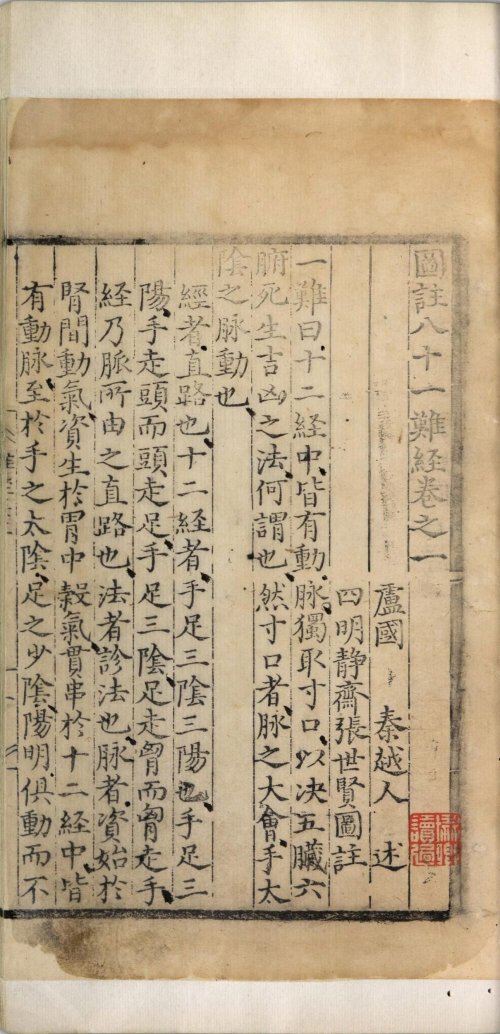 圖註八十一難經卷之一
盧國 秦越人 述
四明靜齋張世賢圖註
一難曰十二経中皆有動脉獨取寸口以决五臟六
腑死生吉凶之法何謂也然寸口者脉之大會手太
陰之脉動也
經者直路也十二経者手足三陰三陽也手足三
陽手走頭而頭走足手足三陰足走胷而胷走手
経乃脈所由之直路也法者診法也脉者資始於
腎間動氣資生於胃中穀氣貫串於十二経中皆
有動脉至於手之太陰足之少陰陽明俱動而不
讀過